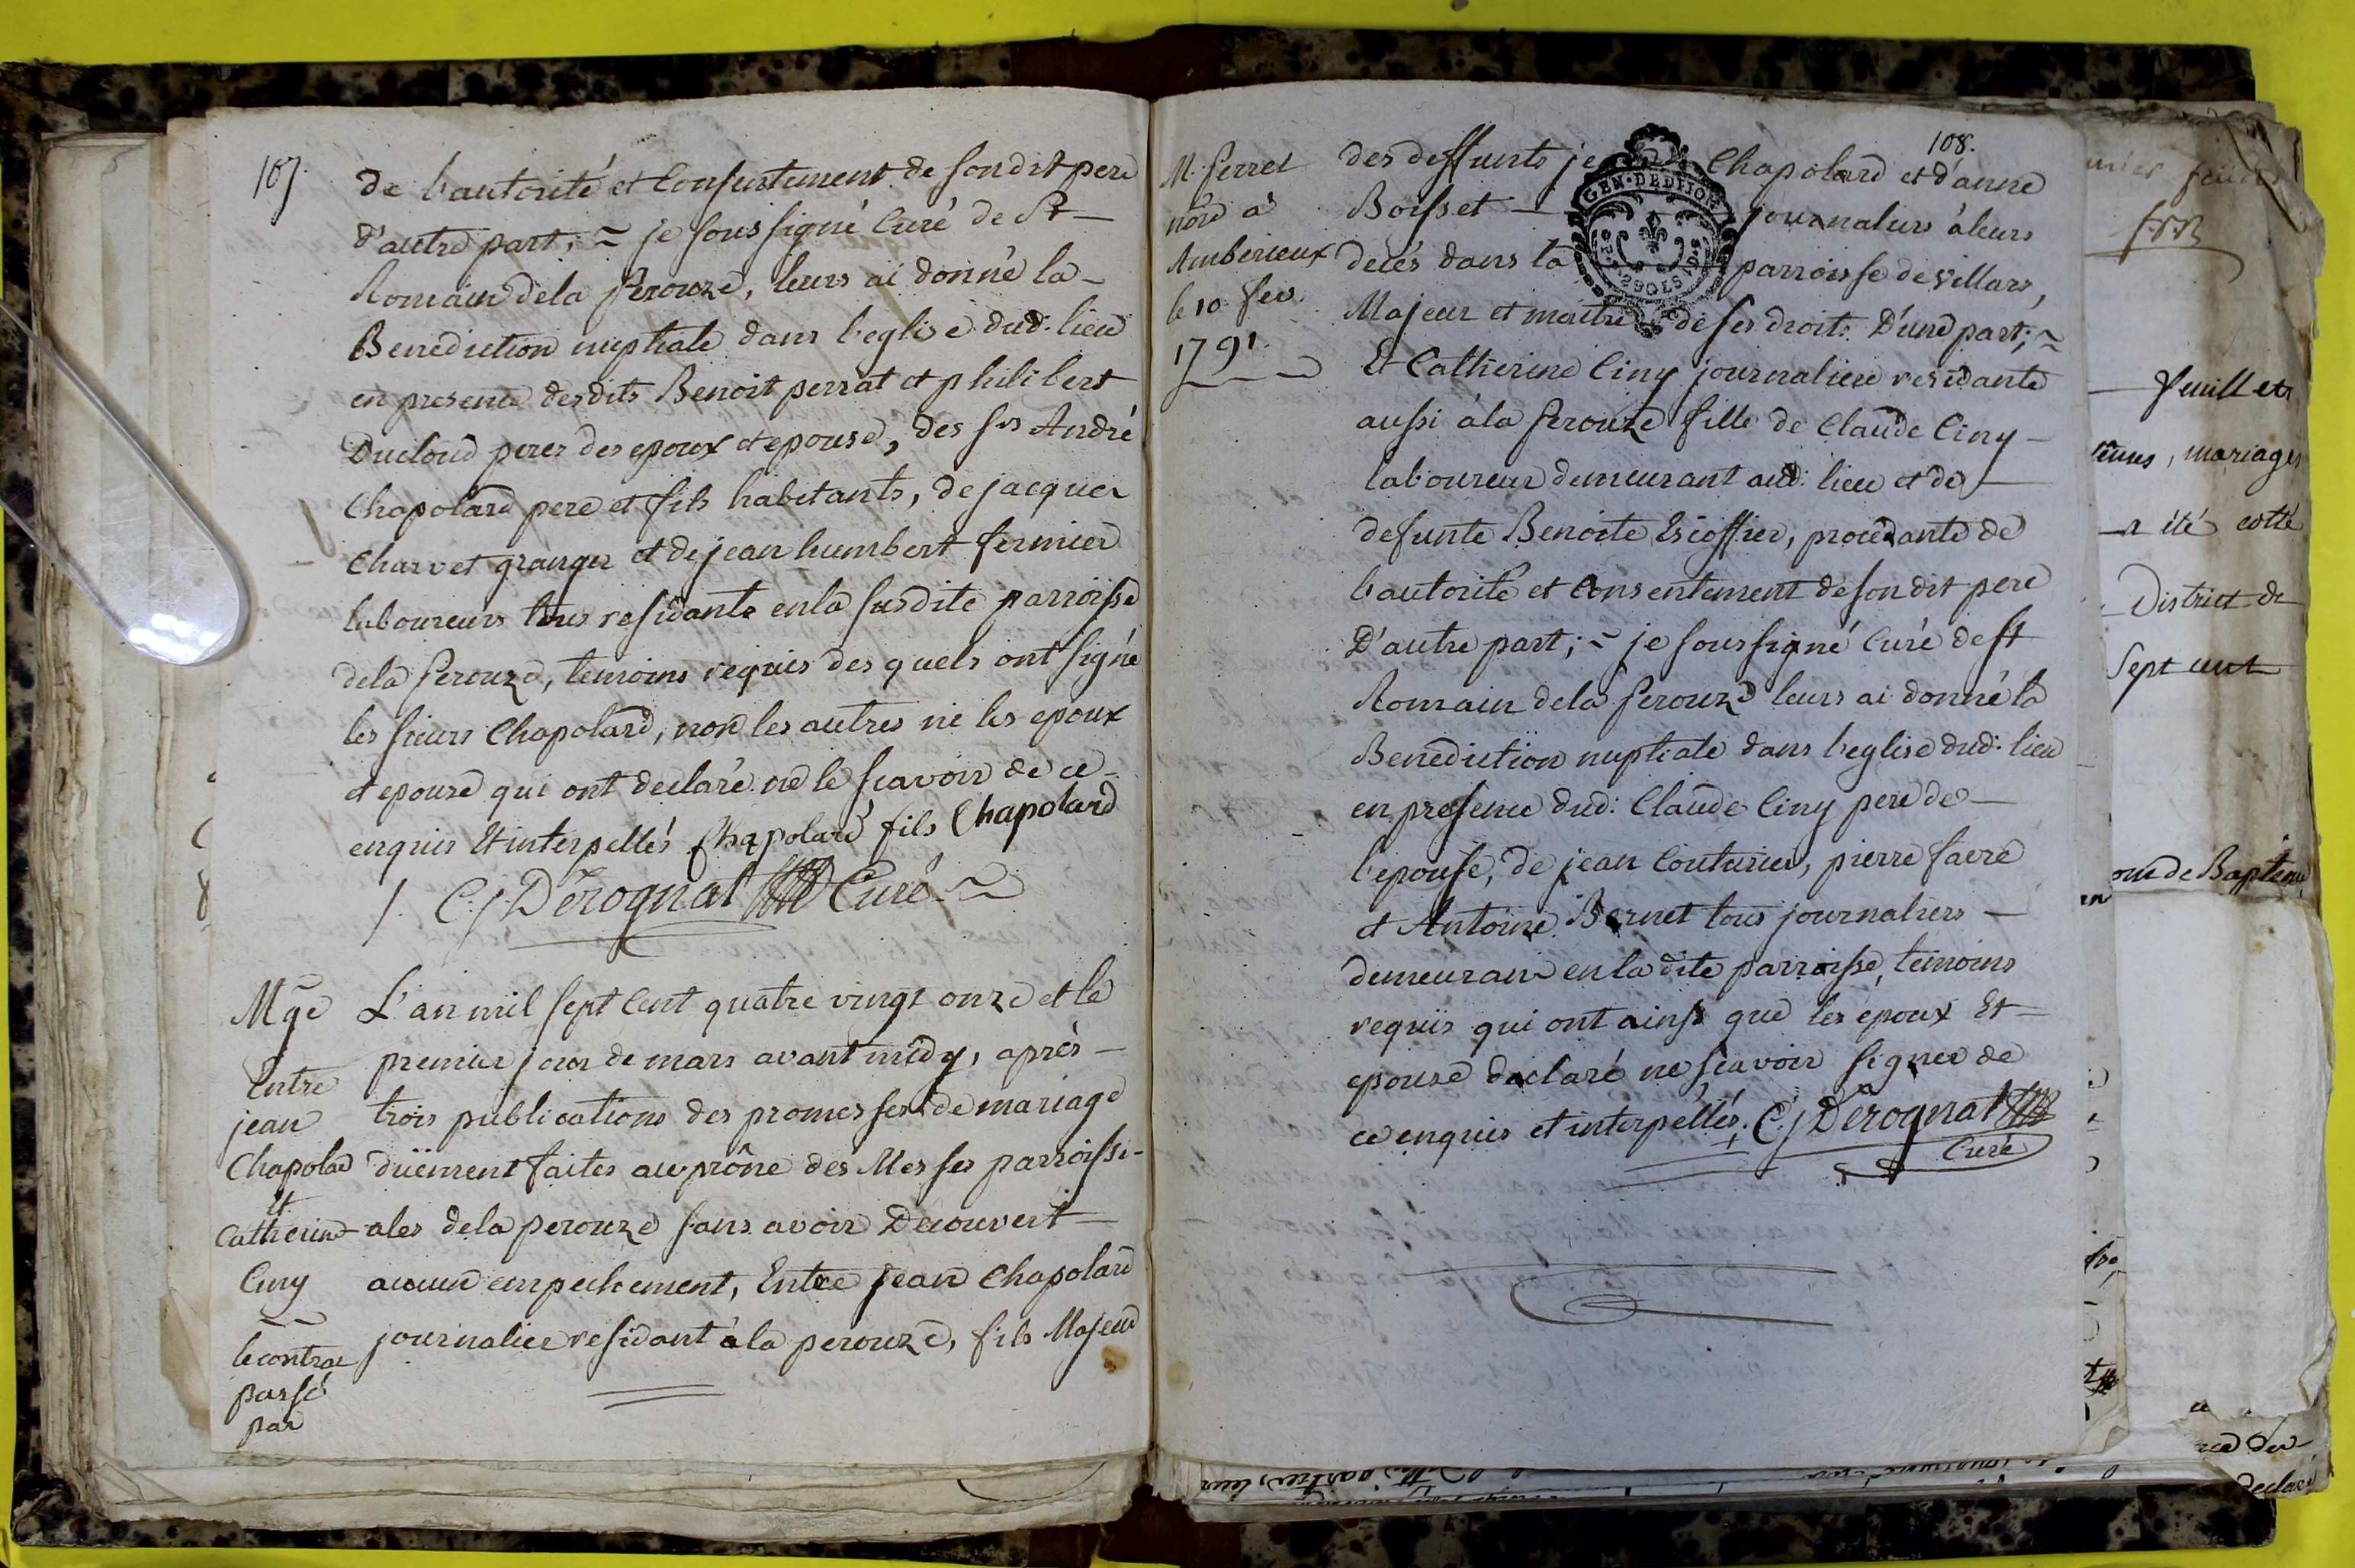 107.
de l'autorité et Consentement de son dit pere
d'autre part; ~ je sous signé Curé de St
Romain dela perouze, leurs ai donné la
Benediction nuptiale dans l'eglise dud: lieu
en presence desdits Benoit perrat et philibert
Ducloud peres des epoux et epouse, des srs André
Chapolard pere et fils habitants, de jacques
Charvet granger et de jean humbert fermier
laboureurs tous residants en la susdite parroisse
dela perouze, temoins requis des quels ont signé
les sieurs Chapolard, non les autres ni les epoux
et epouse qui ont declaré ne le scavoir de ce
enquis Et interpellés Chapolard fils Chapolard
C. j. Derognat Curé
Mge
Entre
jean
Chapolard
Et
Catherine
Ciny
le contrat
passé
par
L'an mil sept cent quatre vingt onze et le
premier jour de mars avant midy, après
trois publications des promesses de mariage
düement faites au prône des Messes parroissi-
ales dela perouze sans avoir Decouvert
aucun empechement, Entre Jean Chapolard
journalier residant à la perouze, fils Majeur
108.
M. ferret
nore à
Amberieux
le 10 fev.
1791.
des deffunts je Chapolard et d'anne
Boisset journaliers à leurs
decés dans la parroisse de villars,
Majeur et maitre de ses droits D'une part; ~
Et Catherine Ciny journaliere residante
aussi à la perouze fille de Claude Ciny
laboureur demeurant aud: lieu et de
defunte Benoite Escoffier, procedante de
l'autorité et Consentement de son dit pere
D'autre part; ~ je soussigné Curé de st
Romain dela perouze leurs ai donné la
Benediction nuptiale dans l'eglise dud: lieu
en presence dud: Claude Ciny pere de
l'epouse, de jean Couturier, pierre favre
et Antoine Bernet tous journaliers
demeurans en la dite parroisse, temoins
requis qui ont ainsi que les epoux Et
epouse declaré ne scavoir signer de
ce enquis et interpellés. C. j Derognat
Curé
GEN. DE DIJON
feuillets
mariages
a été cotté
District de
Sept cent
de Bapteme
declaré